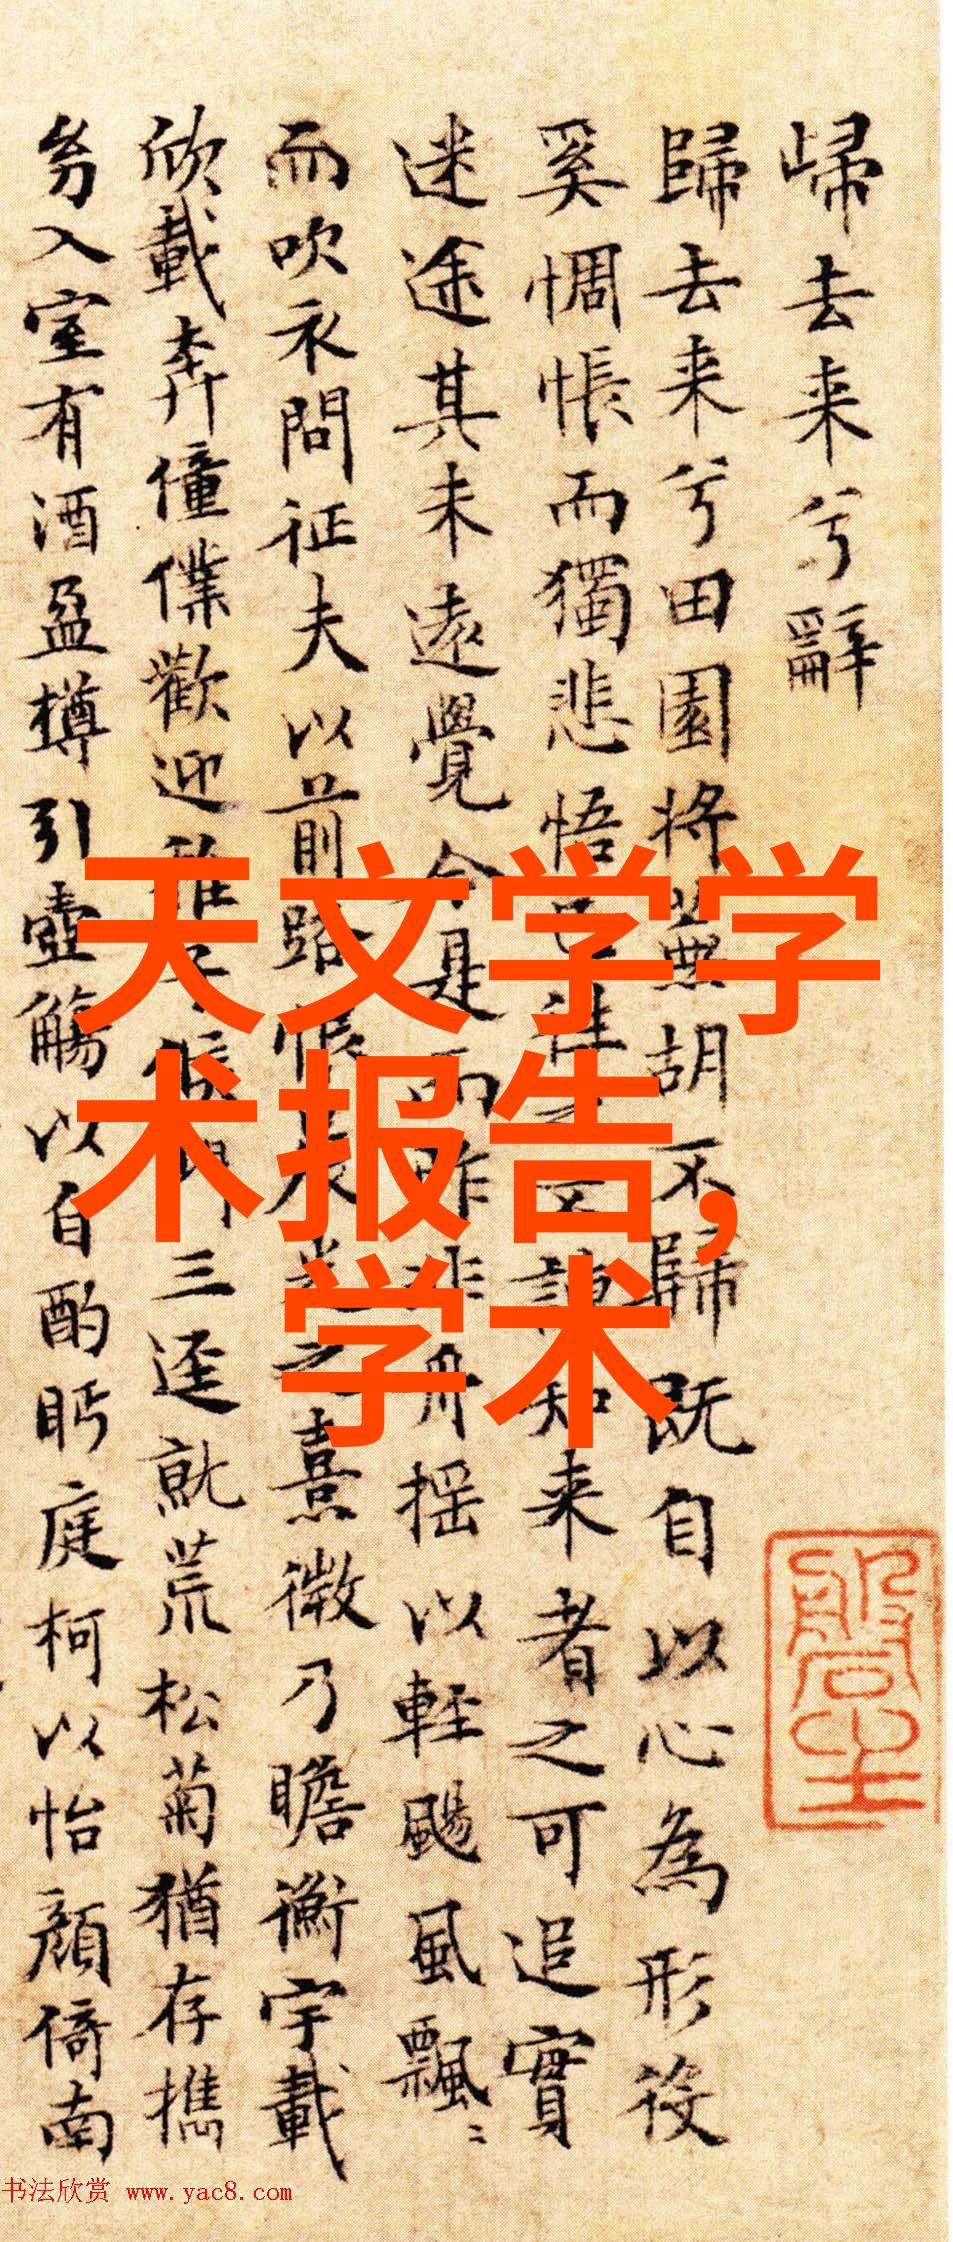 歸去来兮辭
歸去来兮田園将蕪胡不歸既自以心為形役
奚惆悵而獨悲悟已往之不諫知来者之可追實
迷途其未遠覺今是而昨非舟揺以軽颺風飄〻
而吹衣問征夫以前路恨晨光之熹微乃瞻衡宇載
欣載奔僮僕歡迎稚子候門三逕就荒松菊猶存携
幼入室有酒盈樽引壺觴以自酌眄庭柯以怡顔倚南
天文学学
术报告,
学术
书法欣赏 www.yac8.com